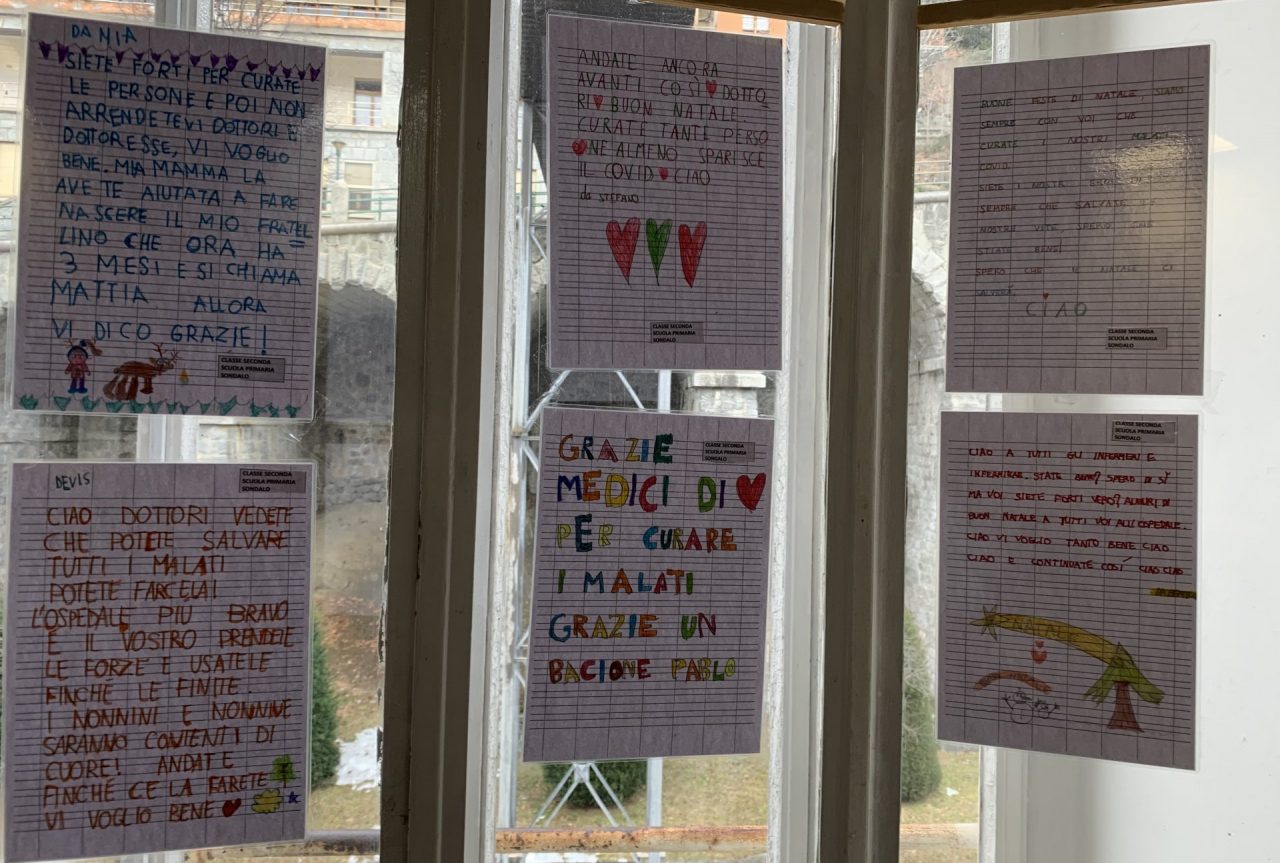 DA NIA
SIETE FORTI PER CURATE
LE PERSONE E POI NON
ARRENDETEVI DOTTORI E
DOTTORESSE, VI VOGLIO
BENE. MIA MAMMA LA
AVETE AIUTATA A FARE
NASCERE IL MIO FRATEL
LINO CHE ORA HA
3 MESI E SI CHIAMA
MATTIA ALLORA
VI DICO GRAZIE!
CLASSE SECONDA
SCUOLA PRIMARIA
SONDALO
ANDATE ANCORA
AVANTI COSÌ DOTTO
RI BUON NATALE.
CURATE TANTE PERSO
NE ALMENO SPARISCE
IL COVID CIAO
da STEFANO
CLASSE SECONDA
SCUOLA PRIMARIA
SONDALO
BUONE FESTE DI NATALE, SIAMO
SEMPRE CON VOI CHE
CURATE I NOSTRI MALATI
COVID.
SIETE I NOSTRI EROI
SEMPRE CHE SALVATE LE
NOSTRE VITE, SPERO CHE
STIATE BENE!
SPERO CHE IL NATALE CI
SALVERÀ.
CIAO
CLASSE SECONDA
SCUOLA PRIMARIA
SONDALO
DEVIS
CLASSE SECONDA
SCUOLA PRIMARIA
SONDALO
CIAO DOTTORI VEDETE
CHE POTETE SALVARE
TUTTI I MALATI
POTETE FARCELA!
L'OSPEDALE PIU BRAVO
E IL VOSTRO PRENDETE
LE FORZE E USATELE
FINCHE LE FINITE.
I NONNINI E NONNINE
SARANNO CONTENTI DI
CUORE! ANDATE
FINCHE CE LA FARETE
VI VOGLIO BENE
GRAZIE
CLASSE SECONDA
SCUOLA PRIMARIA
SONDALO
MEDICI DI
PER CURARE
I MALATI
GRAZIE UN
BACIONE PABLO
CLASSE SECONDA
SCUOLA PRIMARIA
SONDALO
CIAO A TUTTI GLI INFERMIERI E
INFERMIERE. STATE BENE? SPERO DI SÌ
MA VOI SIETE FORTI VERO? AUGURI DI
BUON NATALE A TUTTI VOI ALL'OSPEDALE.
CIAO VI VOGLIO TANTO BENE CIAO
CIAO E CONTINUATE COSÍ CIAO CIAO